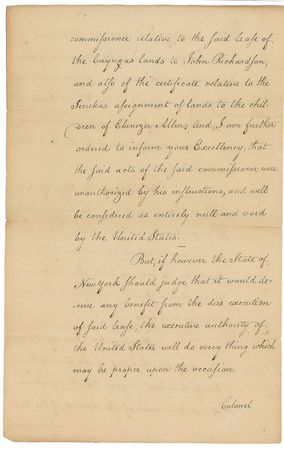 commissioner relative to the said lease of
the Cayugas lands to John Richardson,
and also of the certificate relative to the
Senekas assignment of lands to the chil-
-dren of Ebenezer Allen; And, I am further
ordered to inform your Excellency, that
the said acts of the said commissioner were
unauthorized by his instructions, and will
be considered as entirely null and void
by the United States._
But, if however the State of
New York should judge that it would de-
-rive any benefit from the due execution
of said lease, the executive authority of
the United States will do every thing which
may be proper upon the occasion.
Colonel